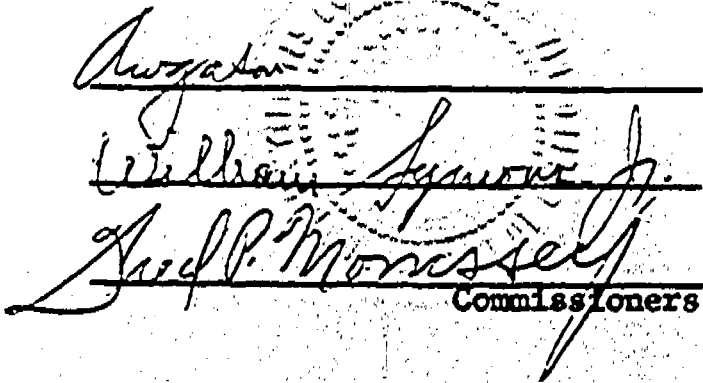 William Symons Jr.
Fred P. Morrissey
Commissioners